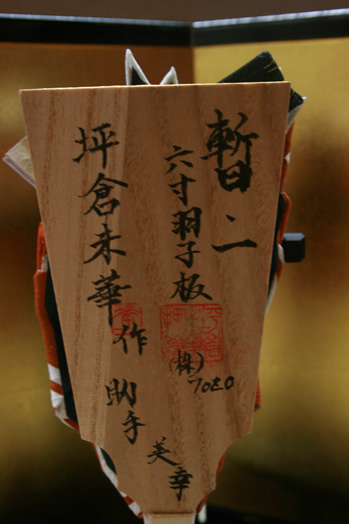 暫、二
六寸羽子板
(株)
坪倉未華作
助手
美幸